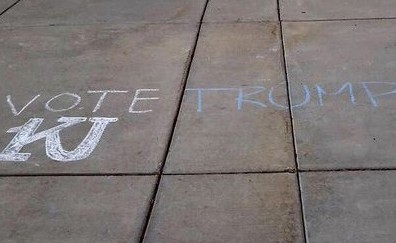 VOTE TRUMP
KU